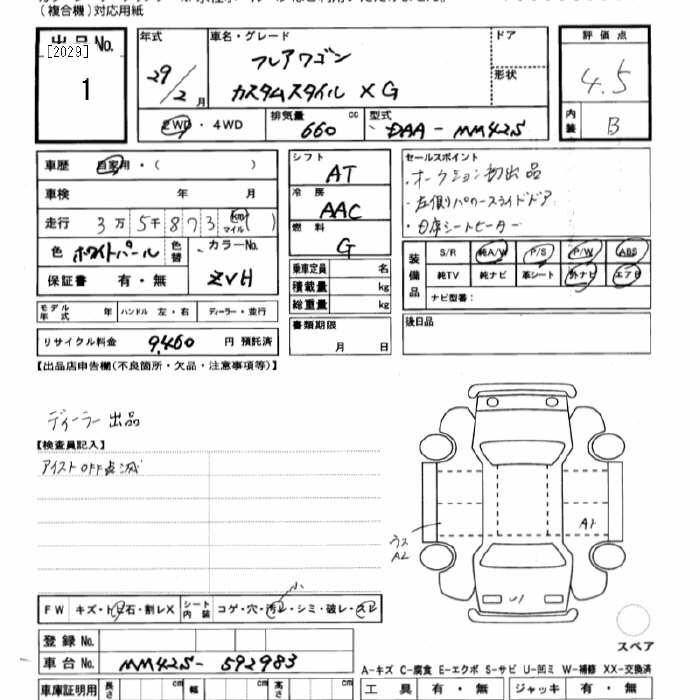 (複合機)対応用紙
出品No.
[2029]
1
年式
29/2月
車名・グレード
フレアワゴン
カスタムスタイル XG
ドア
形状
評価点
4.5
内装
B
2WD・4WD
排気量
660 cc
型式
DAA-MM42S
車歴 自家用・( )
車検 年 月
走行 3万5千873 km マイル ( )
色 ホワイトパール 色替
カラーNo. ZVH
保証書 有・無
シフト
AT
冷房
AAC
燃料
G
乗車定員 名
積載量 kg
総重量 kg
セールスポイント
・オークション初出品
・左側りパワースライドドア
・自席シートヒーター
装備品
S/R 純A/W P/S P/W ABS
純TV 純ナビ 革シート 外ナビ エアB
ナビ型番:
モデル年式 年 ハンドル 左・右 ディーラー・並行
リサイクル料金 9,460 円 預託済
書類期限
月 日
後日品
【出品店申告欄(不良箇所・欠品・注意事項等)】
ディーラー出品
【検査員記入】
アイストOFF点滅
ウス
A2
A1
U1
FW キズ・トビ石・割レX シート内装 コゲ・穴・汚レ・シミ・破レ・スレ
小
スペア
登録No.
車台No. MM42S-592983
A-キズ C-腐食 E-エクボ S-サビ U-凹ミ W-補修 XX-交換済
車庫証明用 長さ cm 幅 cm 高さ cm
工具 有・無 ジャッキ 有・無